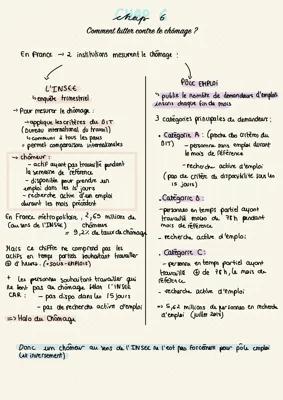 chap 6
Comment lutter contre le chômage ?
En France → 2 institutions mesurent le chômage :
L'INSEE
↳ enquête trimestriel
→ Pour mesurer le chômage :
→ applique les critères du BIT
(Bureau international du travail)
→ commun à tous les pays
→ permet comparaisons internationales
→ chômeur :
- actif ayant pas travaillé pendant
la semaine de référence
- disponible pour prendre un
emploi dans les 15 jours
- recherche active d'un emploi
durant les mois précédent
En France métropolitaine, 2,65 millions de
(au sens de l'INSEE) chômeurs
= 9,2% de taux de chômage
Mais ce chiffre ne comprend pas les
actifs en temps partiel souhaitant travailler
d'heures. (=sous-emploi)
+ les personnes souhaitant travailler qui
ne sont pas au chômage selon l'INSEE
CAR : - pas dispo dans les 15 jours
- pas de recherche active d'emploi
=> Halo du Chômage
PÔLE EMPLOI
↳ publie le nombre de demandeurs d'emploi
inscris chaque fin de mois
3 catégories principales de demandeur :
• Catégorie A : (proche des critères du
BIT)
- personnes sans emploi durant
le mois de référence
- recherche active d'emploi
(pas de critère de disponibilité sous les
15 jours)
• Catégorie B :
- personnes en temps partiel ayant
travaillé moins de 78h pendant
mois de référence
- recherche active d'emploi
• Catégorie C :
- personne en temps partiel ayant
travaillé ⊕ de 78h, le mois de
référence
- recherche active d'emploi
=> 5,62 millions de personnes en recherche
d'emploi
Donc un chômeur au sens de l'INSEE ne l'est pas forcément pour pôle emploi
(et inversement)